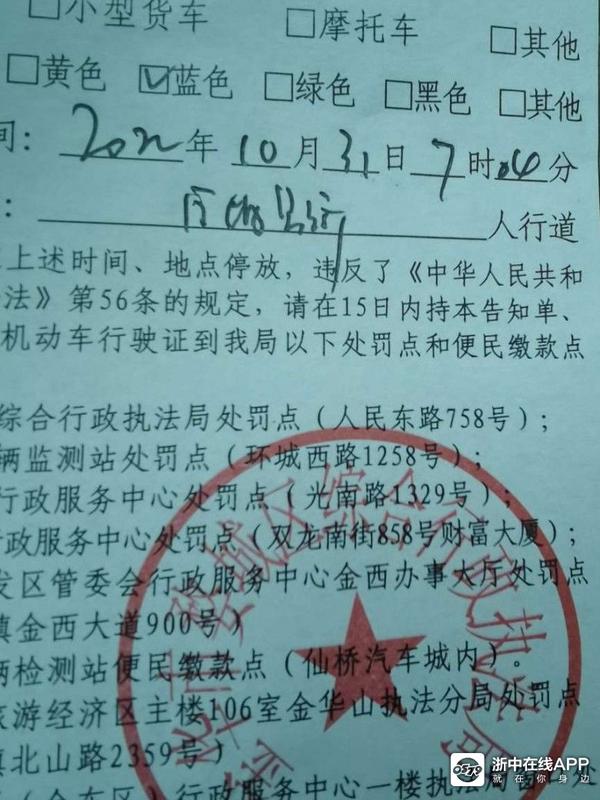 □小型货车 □摩托车 □其他
□黄色 ☑蓝色 □绿色 □黑色 □其他
间：2022年10月31日7时04分
：人行道
上述时间、地点停放，违反了《中华人民共和
法》第56条的规定，请在15日内持本告知单、
机动车行驶证到我局以下处罚点和便民缴款点
综合行政执法局处罚点（人民东路758号）；
辆监测站处罚点（环城西路1258号）；
行政服务中心处罚点（光南路1329号）；
行政服务中心处罚点（双龙南街858号财富大厦）；
发区管委会行政服务中心金西办事大厅处罚点
镇金西大道900号）
辆检测站便民缴款点（仙桥汽车城内）。
旅游经济区主楼106室金华山执法分局处罚点
镇北山路2359号）
（金东区）行政服务中心一楼执法局窗口处
市婺城区综合行政执法局
浙中在线APP
就在你身边